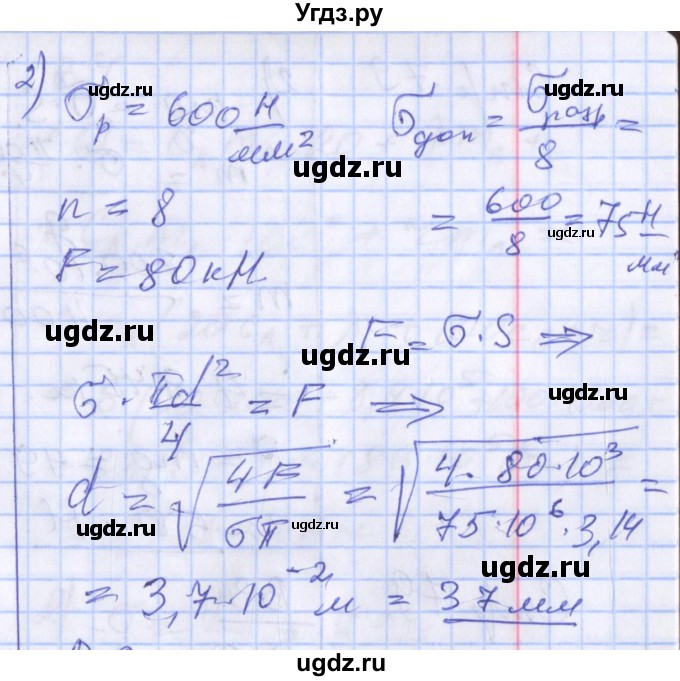 Угдз.ру
2) σ_р = 600 Н/мм² σ_доп = σ_разр/8 =
n = 8 = 600/8 = 75 Н/мм
F = 80 кН
F = σ·S ⇒
σ · πd²/4 = F ⇒
d = √(4F/σπ) = √(4·80·10³/75·10⁶·3,14) =
= 3,7·10⁻² м = 37 мм
ugdz.ru
ugdz.ru
ugdz.ru
ugdz.ru
ugdz.ru
ugdz.ru
ugdz.ru
ugdz.ru
ugdz.ru
ugdz.ru
ugdz.ru
ugdz.ru
ugdz.ru
ugdz.ru